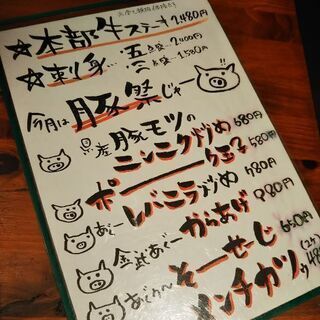 ☆本部牛ステーキ 2,480円
☆刺身…五点盛 2,400円
三点盛 1,580円
今月は豚祭じゃー
県産豚モツのニンニク炒め 680円
ポーク玉子 580円
あぐー レバニラ炒め 780円
金武あぐー からあげ 980円
あぐー そーせーじ 650円
メンチカツ (2ケ) 48